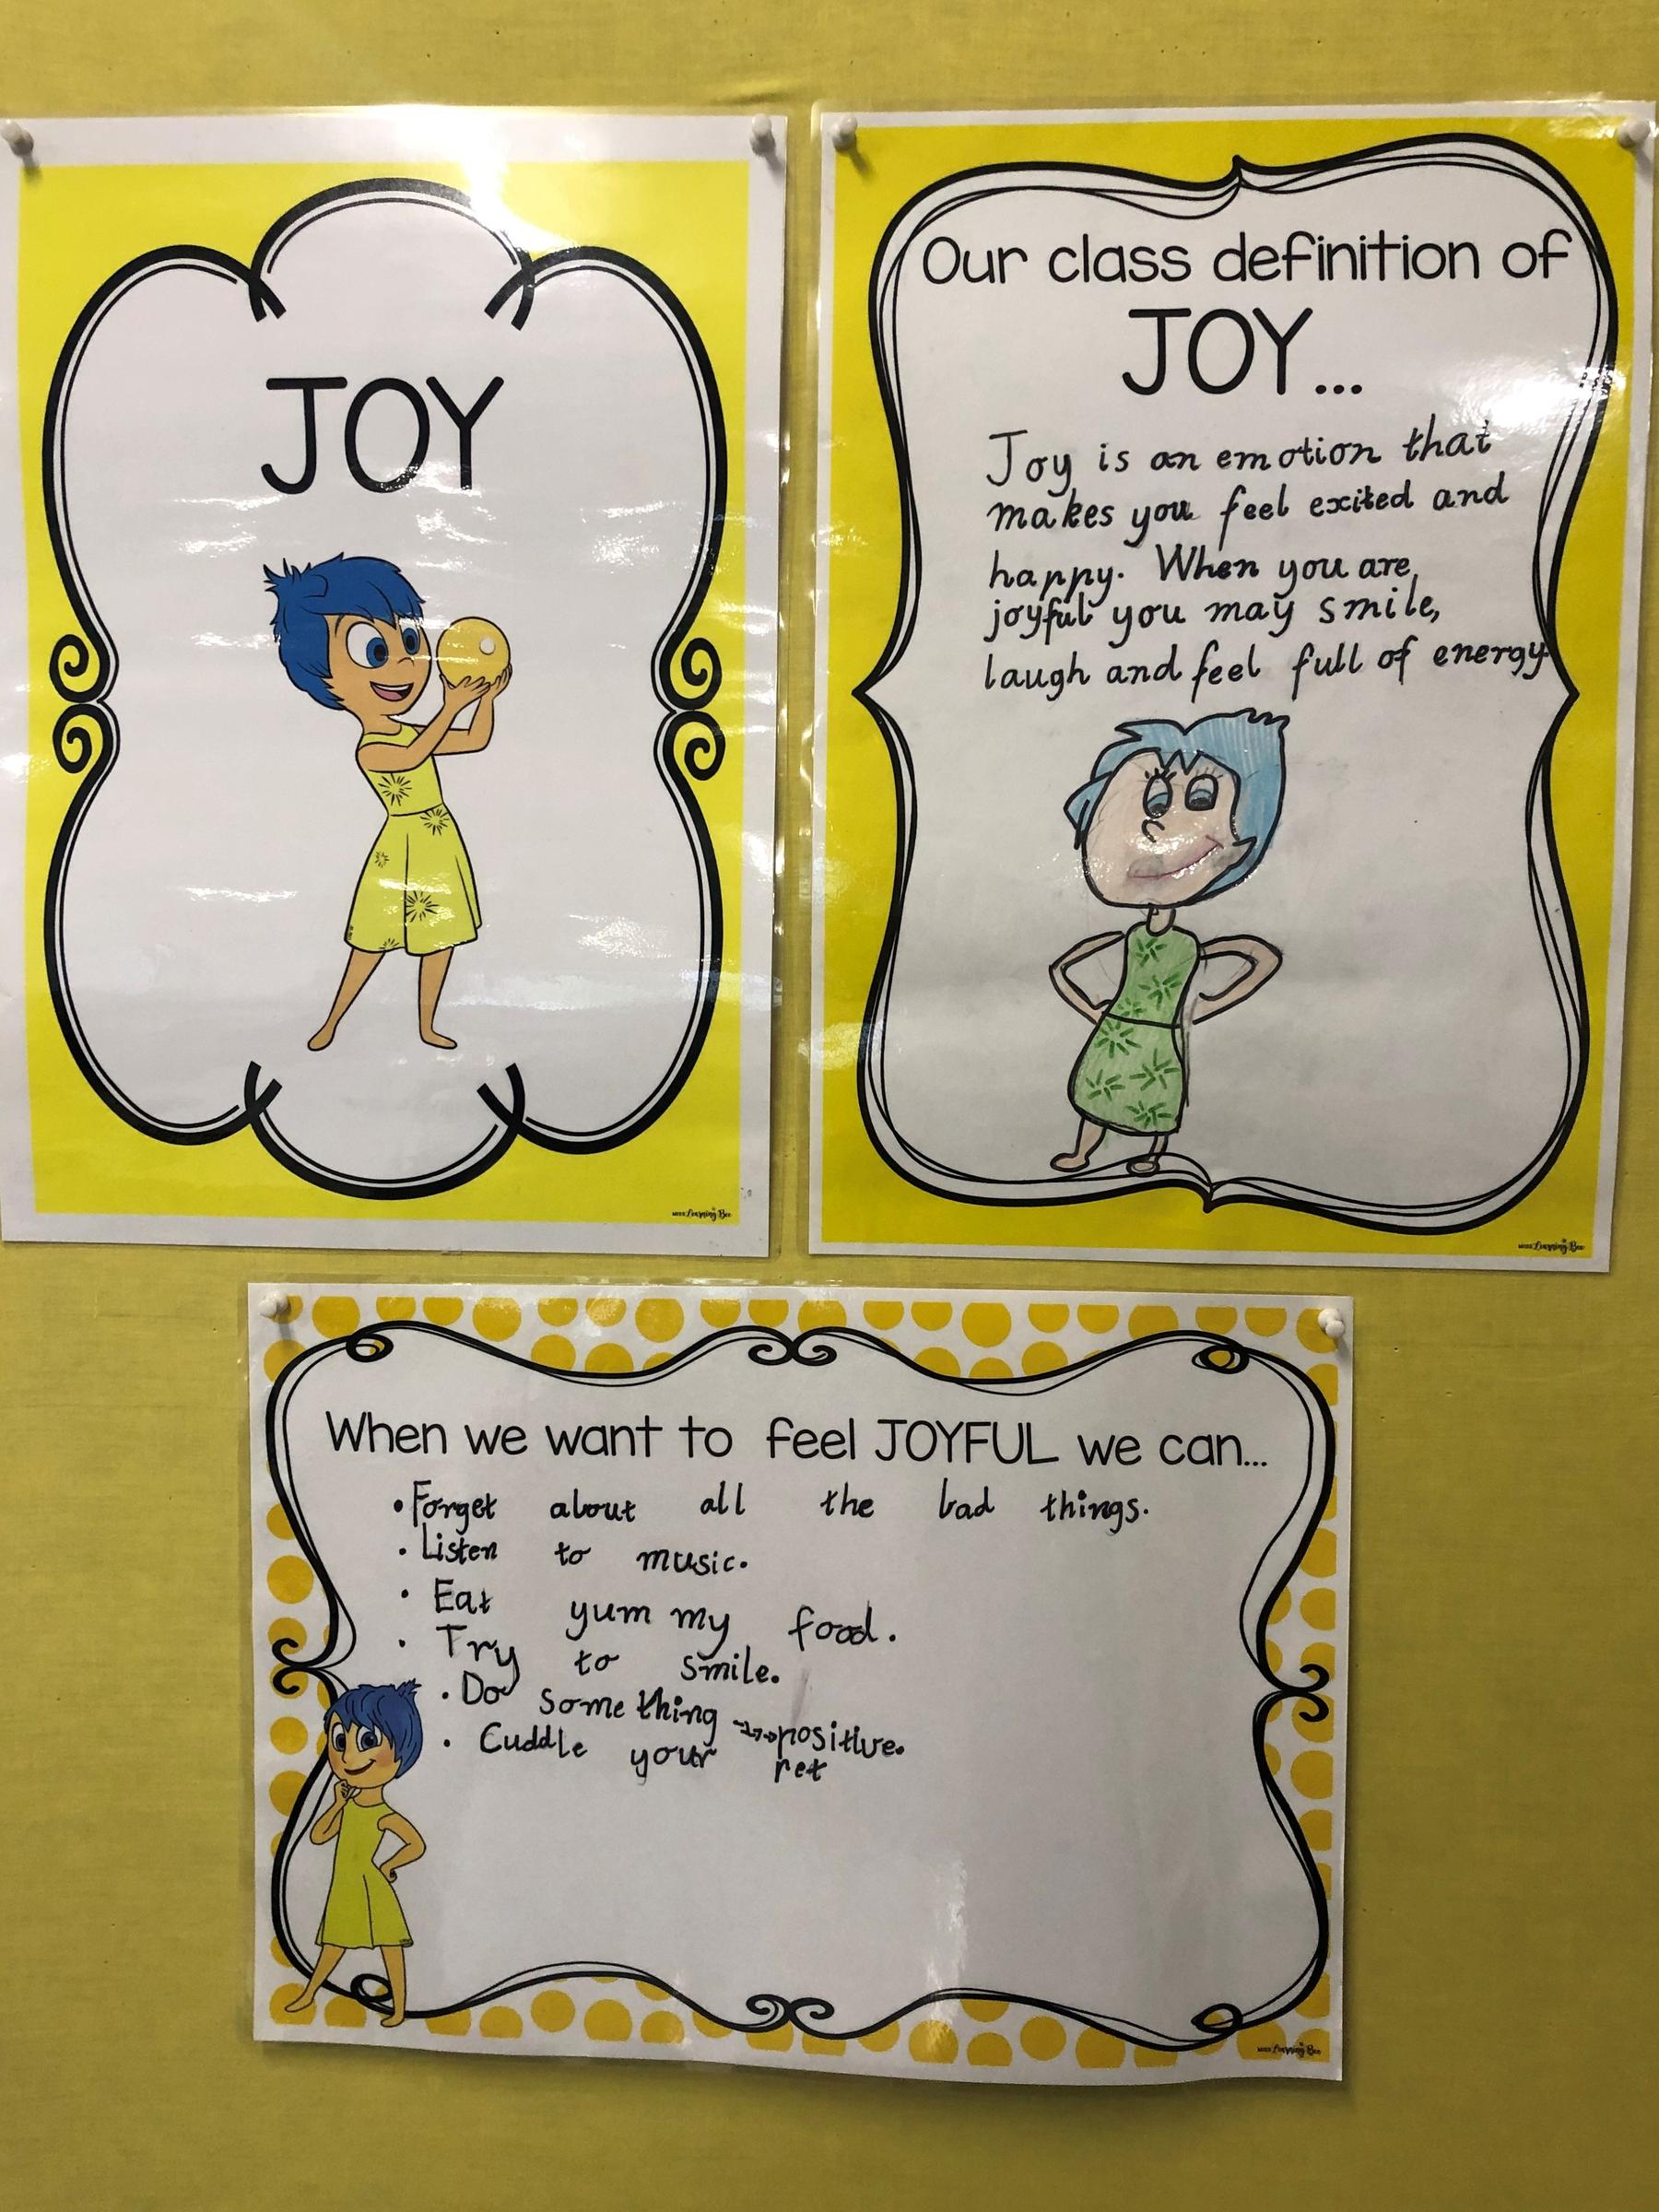 JOY
Our class definition of
JOY...
Joy is an emotion that
makes you feel exited and
happy. When you are
joyful you may smile,
laugh and feel full of energy
When we want to feel JOYFUL we can...
•Forget about all the bad things.
• Listen to music.
• Eat yummy food.
• Try to smile.
• Do something positive.
• Cuddle your pet
Learning Bee
Learning Bee
Learning Bee